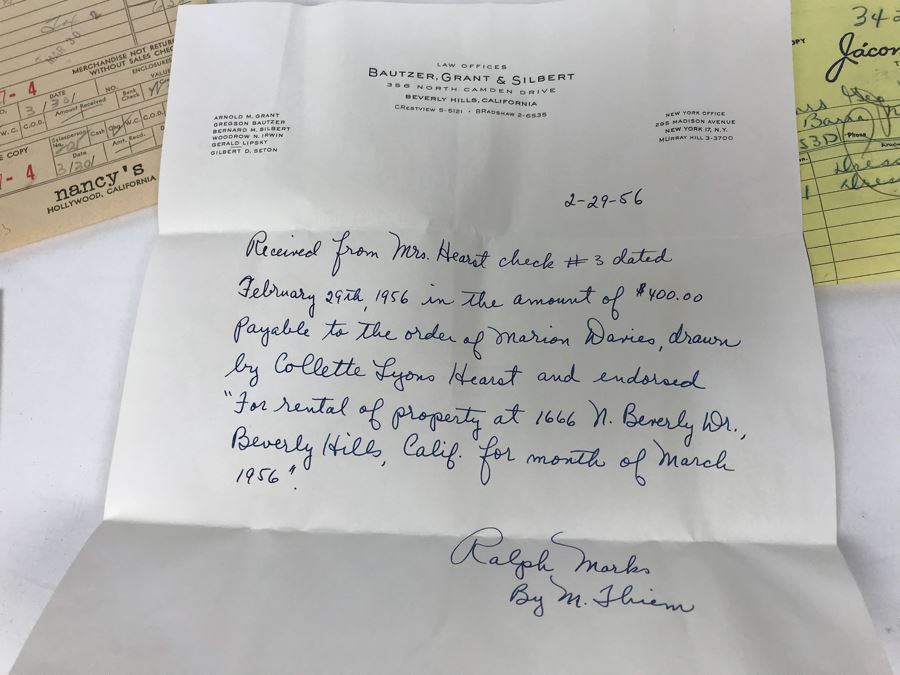 LAW OFFICES
BAUTZER, GRANT & SILBERT
356 NORTH CAMDEN DRIVE
BEVERLY HILLS, CALIFORNIA
CRESTVIEW 5-5121 • BRADSHAW 2-6535
ARNOLD M. GRANT
GREGSON BAUTZER
BERNARD M. SILBERT
WOODROW N. IRWIN
GERALD LIPSKY
GILBERT D. SETON
NEW YORK OFFICE
295 MADISON AVENUE
NEW YORK 17, N.Y.
MURRAY HILL 3-3700
2-29-56
Received from Mrs. Hearst check #3 dated
February 29th, 1956 in the amount of $400.00
Payable to the order of Marion Davies, drawn
by Collette Lyons Hearst and endorsed
"For rental of property at 1666 N. Beverly Dr.,
Beverly Hills, Calif. for month of March
1956".
Ralph Marks
By M. Thiem
MERCHANDISE NOT RETUR
WITHOUT SALES CHEC
ENCLOSURES
7-4
DATE
NO.
VALU
3/30/
Amount Received
Bank Check
W.C.
C.O.D.
Salesperson
Cash
Chg
W.C.
C.O.D.
Date
Amt. Recd.
E COPY
7-4
3/30/
nancy's
HOLLYWOOD, CALIFORNIA
342
OPY
Jácon
Phone
Dress
Dress